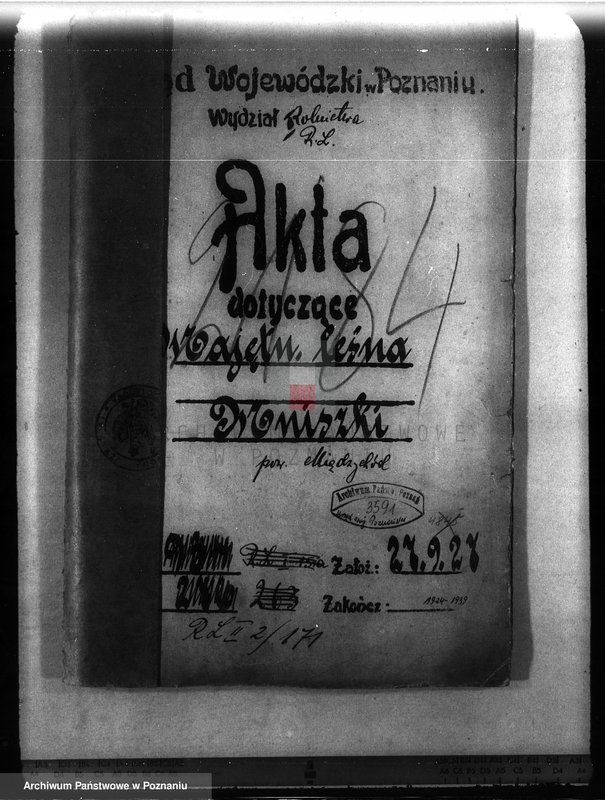 d Wojewódzki w Poznaniu.
Wydział Rolnictwa
R.L.
Akta
2484
dotyczące
Majętn. leśna
Mniszki
pow. Międzychód
Archiwum Państw. Poznań
3591
4848
Załoź.: 27.9.27
Zakończ: 1924-1939
RL II 2/171
Archiwum Państwowe w Poznaniu